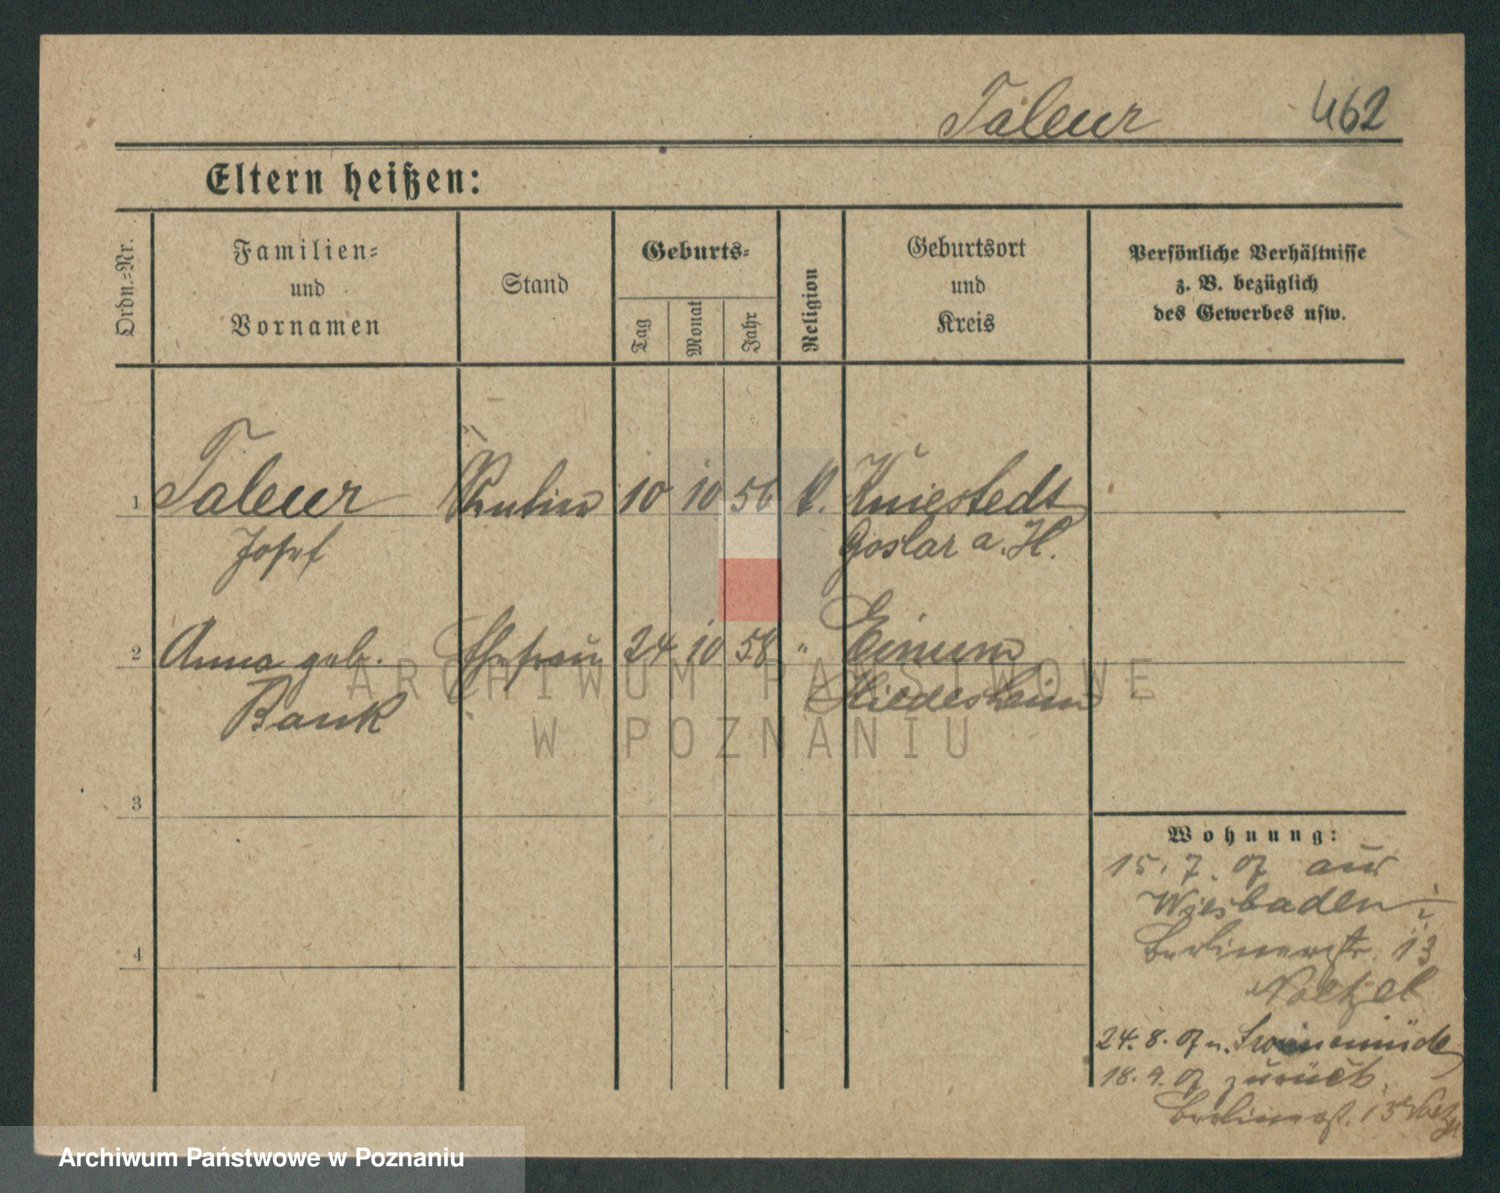 Taleur 462
Eltern heißen:
Ordn.-Nr.
Familien-
und
Vornamen
Stand
Geburts-
Tag
Monat
Jahr
Religion
Geburtsort
und
Kreis
Persönliche Verhältnisse
z. B. bezüglich
des Gewerbes usw.
1 Taleur Rentier 10 10 56 k. Kniestedt
Josef Goslar a. H.
2 Anna geb. Ehefrau 24 10 58 " Einum
Bank Hildesheim
3
4
Wohnung:
15. 7. 07 aus
Wiesbaden
Berlinerstr. 13
Noetzel
24. 8. 07 n. Swinemünde
18. 9. 07 zurück
Berlinerst. 13
ARCHIWUM PAŃSTWOWE
W POZNANIU
Archiwum Państwowe w Poznaniu